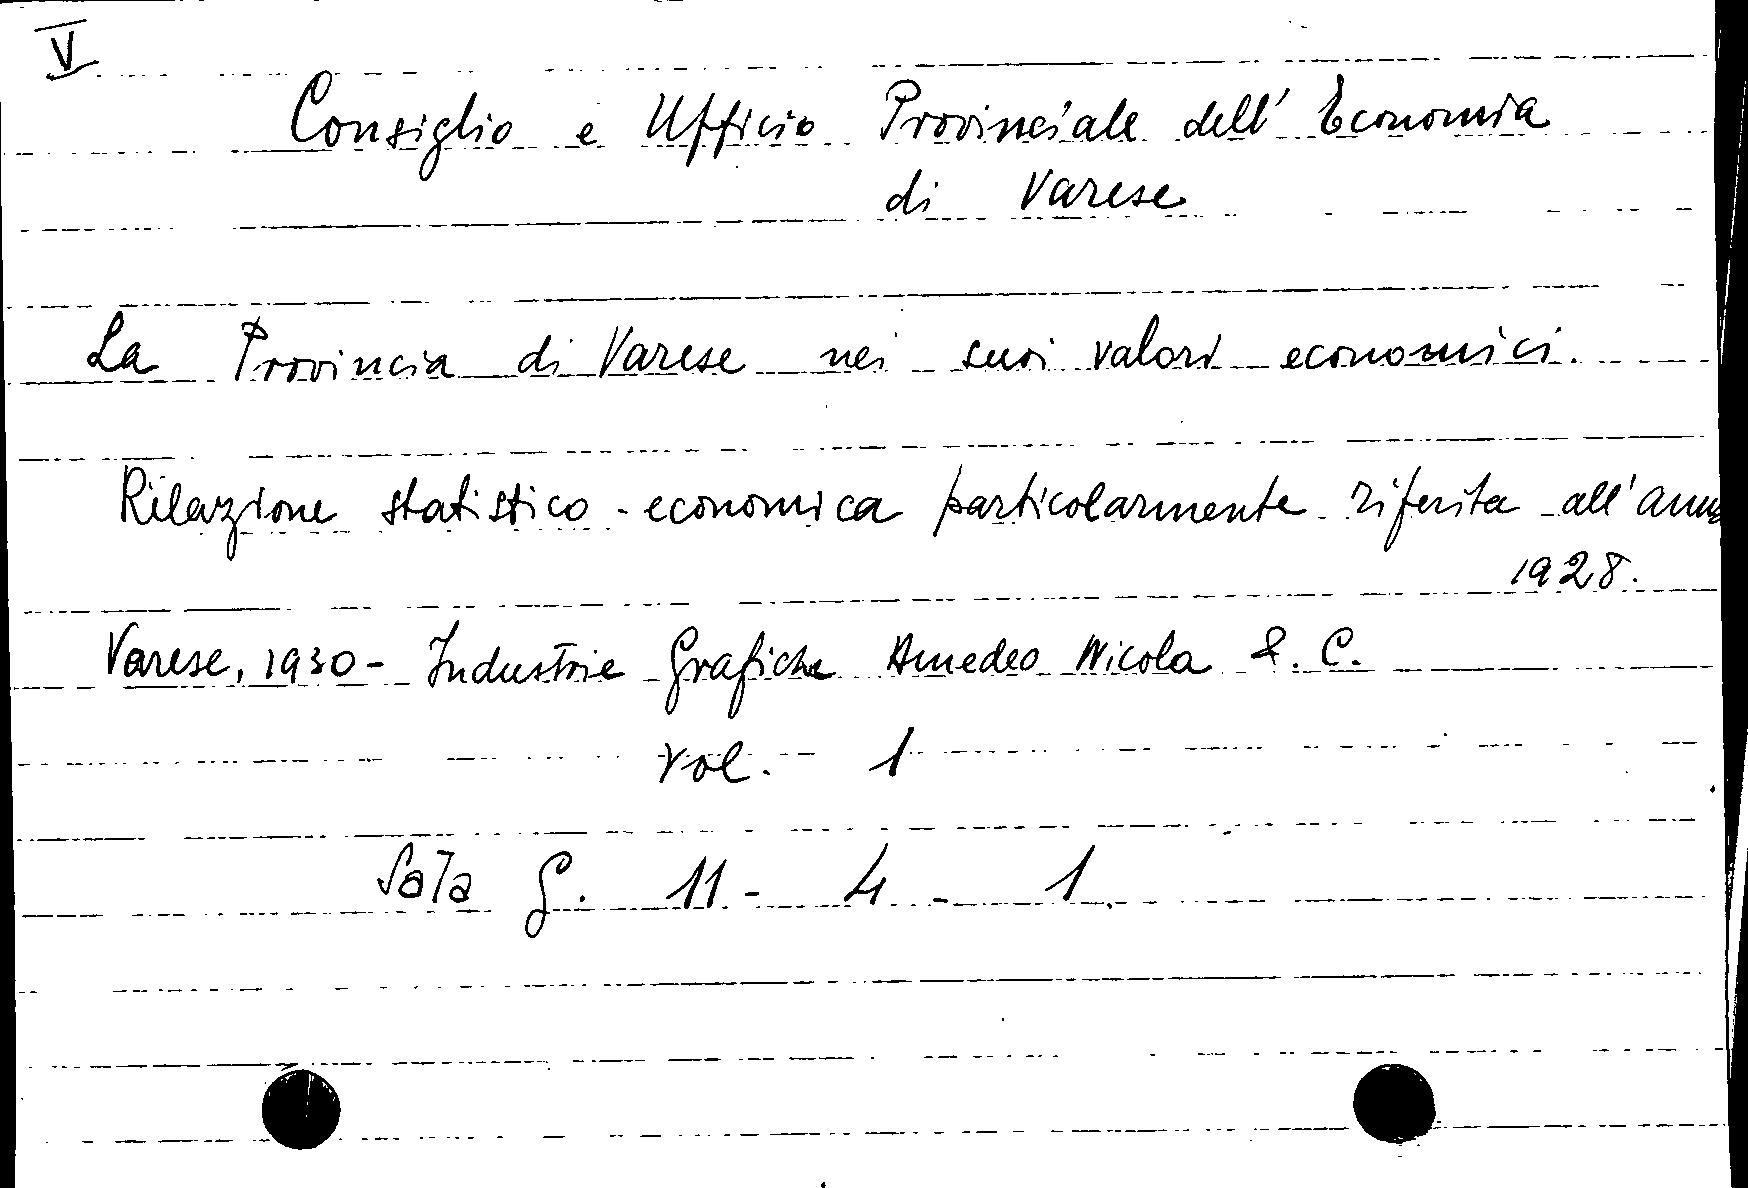 V
Consiglio e Ufficio Provinciale dell' Economia
di Varese
La Provincia di Varese nei suoi valori economici.
Relazione statistico-economica particolarmente riferita all'anno
1928.
Varese, 1930 - Industrie Grafiche Amedeo Nicola & C.
Vol. 1
Sala G. 11 - 4 - 1.